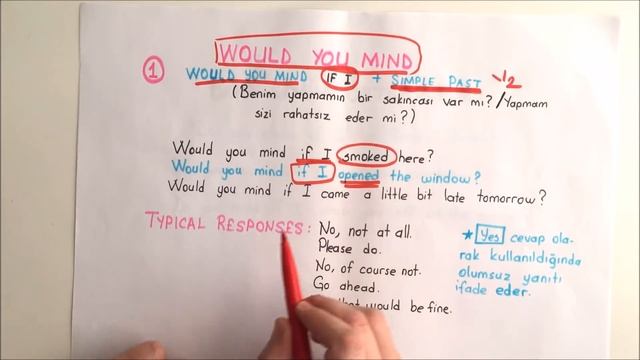 WOULD YOU MIND
1 WOULD YOU MIND IF I + SIMPLE PAST V2
(Benim yapmamın bir sakıncası var mı?/Yapmam
sizi rahatsız eder mi?)
Would you mind if I smoked here?
Would you mind if I opened the window?
Would you mind if I came a little bit late tomorrow?
TYPICAL RESPONSES: No, not at all.
Please do.
No, of course not.
Go ahead.
that would be fine.
★ Yes cevap ola-
rak kullanıldığında
olumsuz yanıtı
ifade eder.